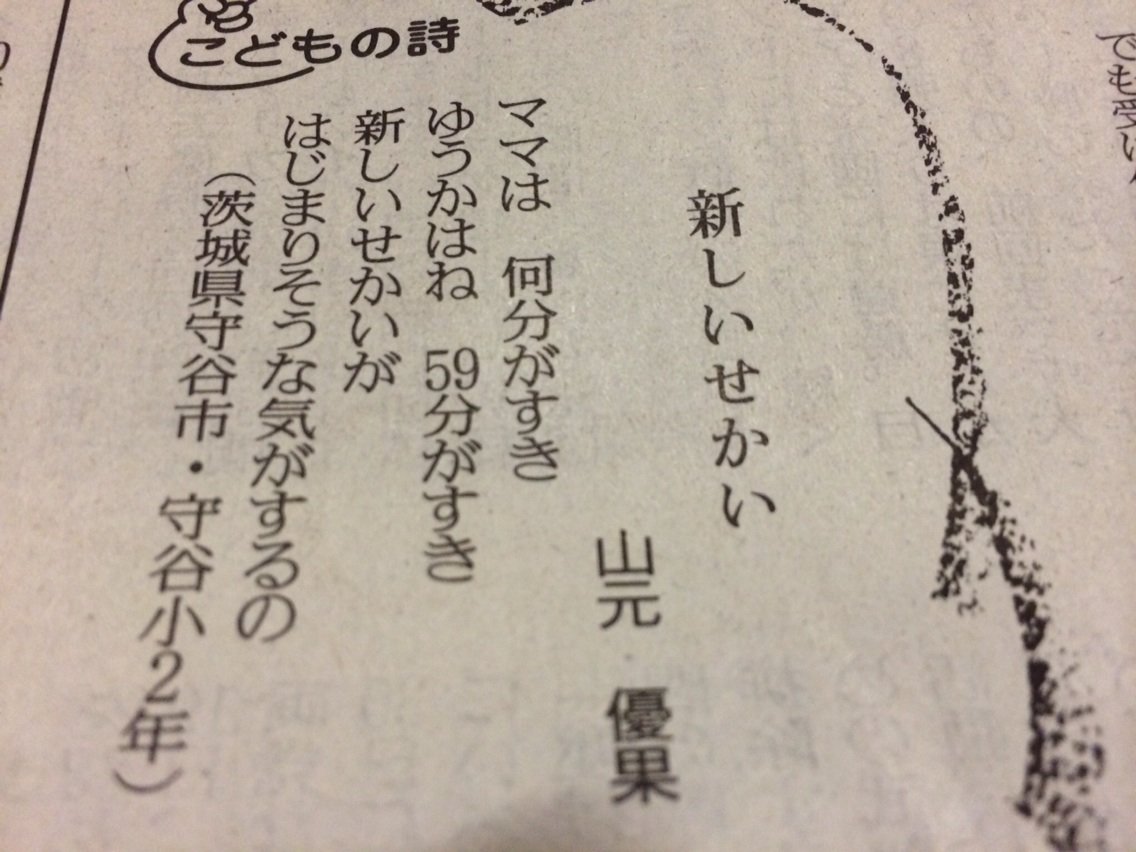 こどもの詩
新しいせかい
山元 優果
ママは 何分がすき
ゆうかはね 59分がすき
新しいせかいが
はじまりそうな気がするの
（茨城県守谷市・守谷小2年）
でも受い